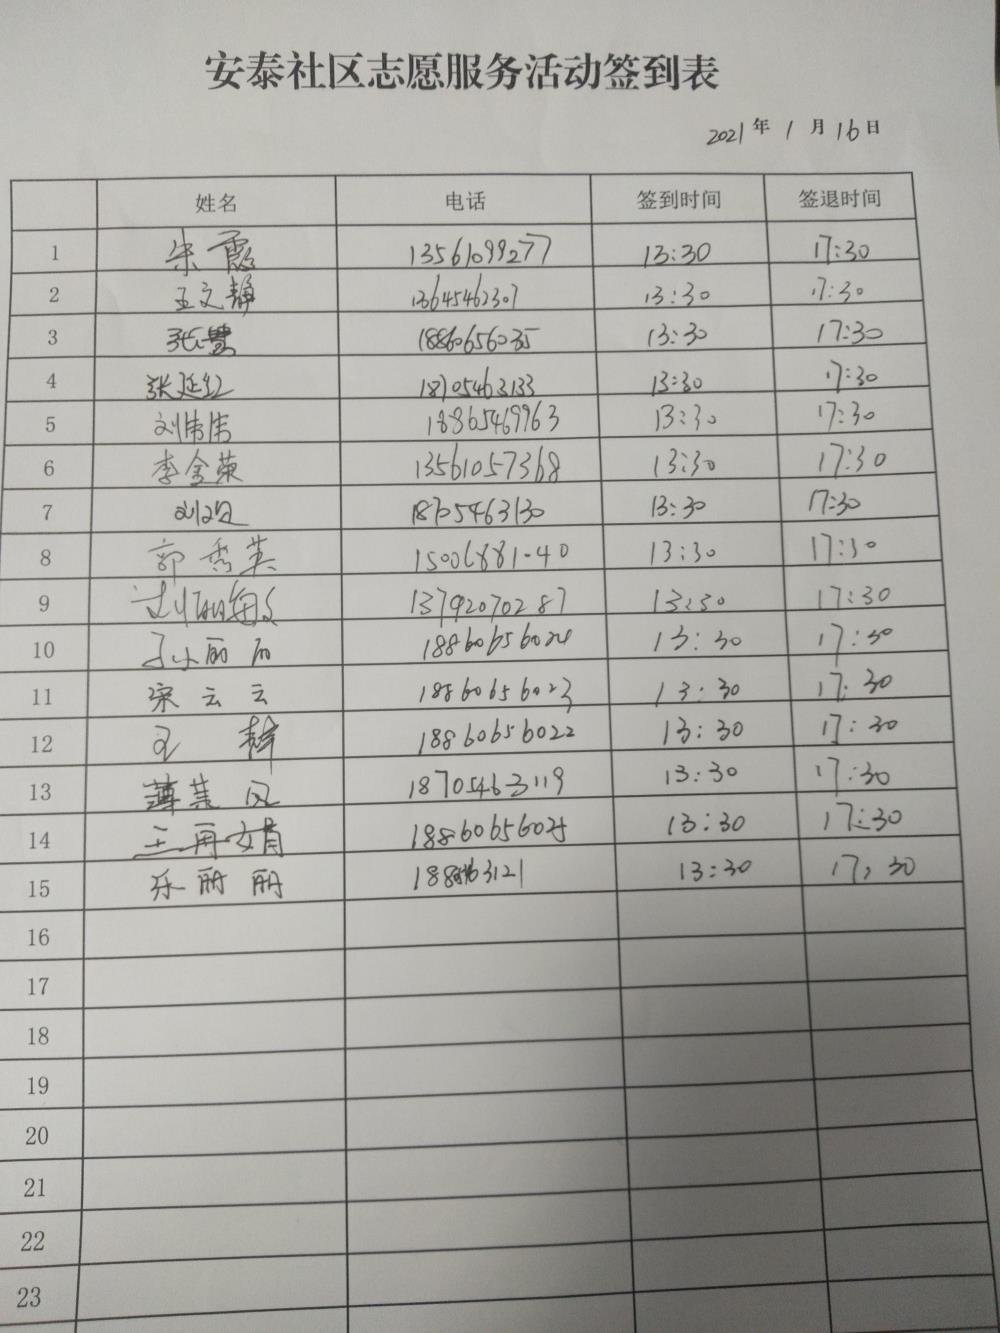 安泰社区志愿服务活动签到表
2021年 1月16日
姓名 电话 签到时间 签退时间
1 朱霞 13561099277 13:30 17:30
2 王文静 13645462307 13:30 17:30
3 18860656035 13:30 17:30
4 张延红 18705463133 13:30 17:30
5 刘伟伟 18865469963 13:30 17:30
6 李金荣 13561057368 13:30 17:30
7 18705463130 13:30 17:30
8 郭秀英 13:30 17:30
9 13792070287 13:30 17:30
10 18860656024 13:30 17:30
11 宋云云 18860656023 13:30 17:30
12 18860656022 13:30 17:30
13 18705463119 13:30 17:30
14 18860656025 13:30 17:30
15 乐丽丽 13:30 17:30
16
17
18
19
20
21
22
23